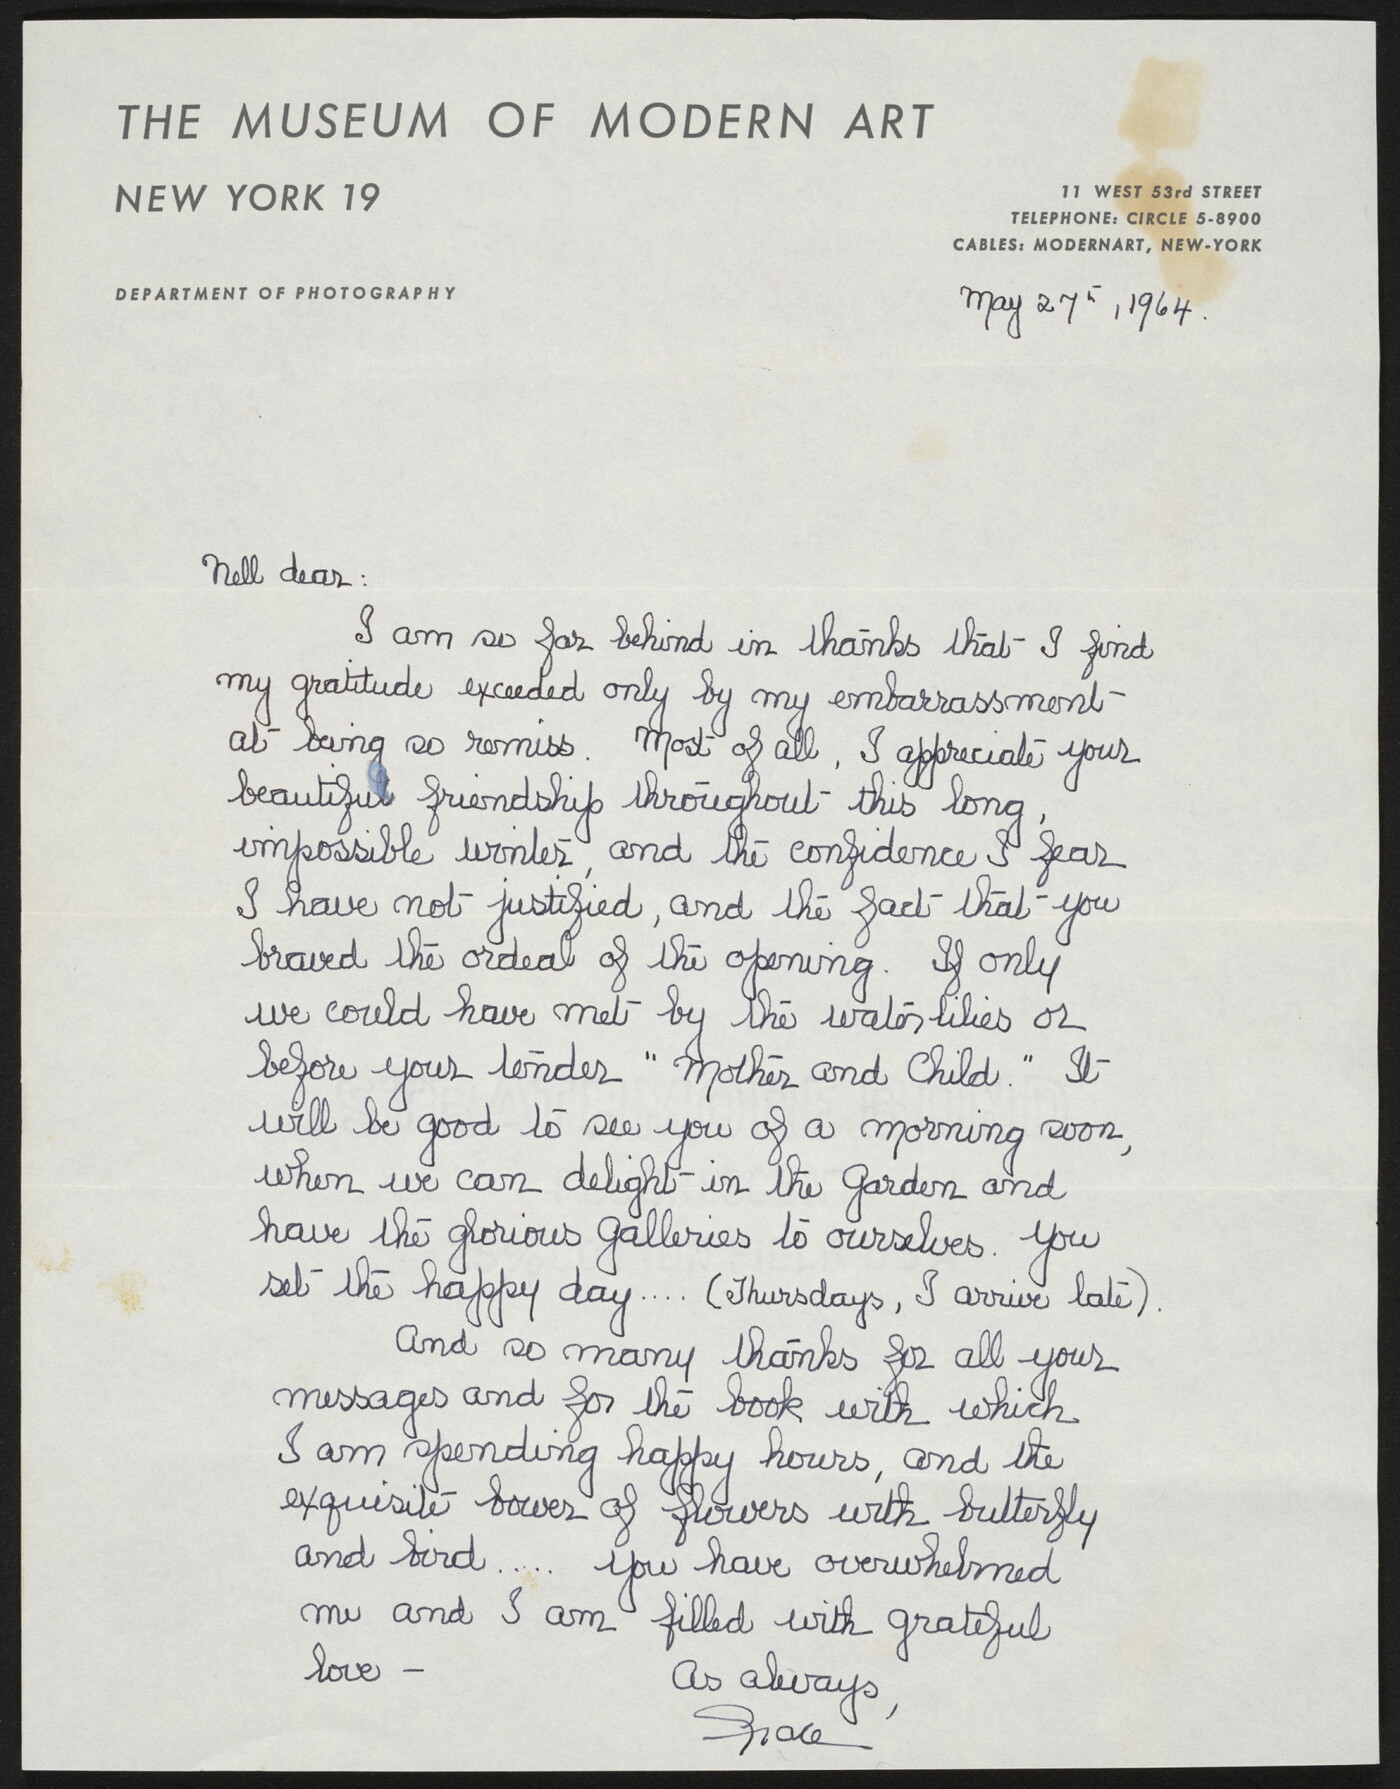 THE MUSEUM OF MODERN ART
NEW YORK 19
11 WEST 53rd STREET
TELEPHONE: CIRCLE 5-8900
CABLES: MODERNART, NEW-YORK
DEPARTMENT OF PHOTOGRAPHY
May 27th, 1964.
Nell dear:
I am so far behind in thanks that I find
my gratitude exceeded only by my embarrassment
at being so remiss. Most of all, I appreciate your
beautiful friendship throughout this long,
impossible winter, and the confidence I fear
I have not justified, and the fact that you
braved the ordeal of the opening. If only
we could have met by the waterlilies or
before your tender "Mother and Child." It
will be good to see you of a morning soon,
when we can delight in the Garden and
have the glorious Galleries to ourselves. You
set the happy day.... (Thursdays, I arrive late).
And so many thanks for all your
messages and for the book with which
I am spending happy hours, and the
exquisite bower of flowers with butterfly
and bird..... You have overwhelmed
me and I am filled with grateful
love –
As always,
Grace